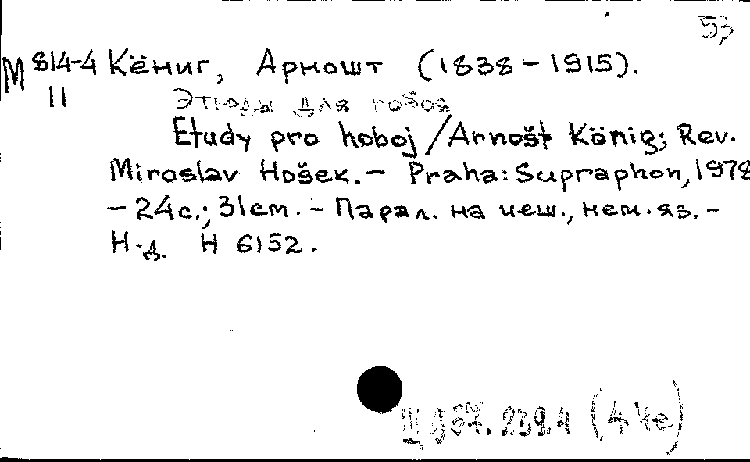 53
М 814-4 Кёниг, Арношт (1838-1915).
11 Этюды для гобоя
Etudy pro hoboj / Arnošt König; Rev.
Miroslav Hošek. - Praha: Supraphon, 1978
- 24с.; 31см. - Парал. на чеш., нем. яз. -
Н.д. H 6152.
Щ 957. 239.4 (4Че)